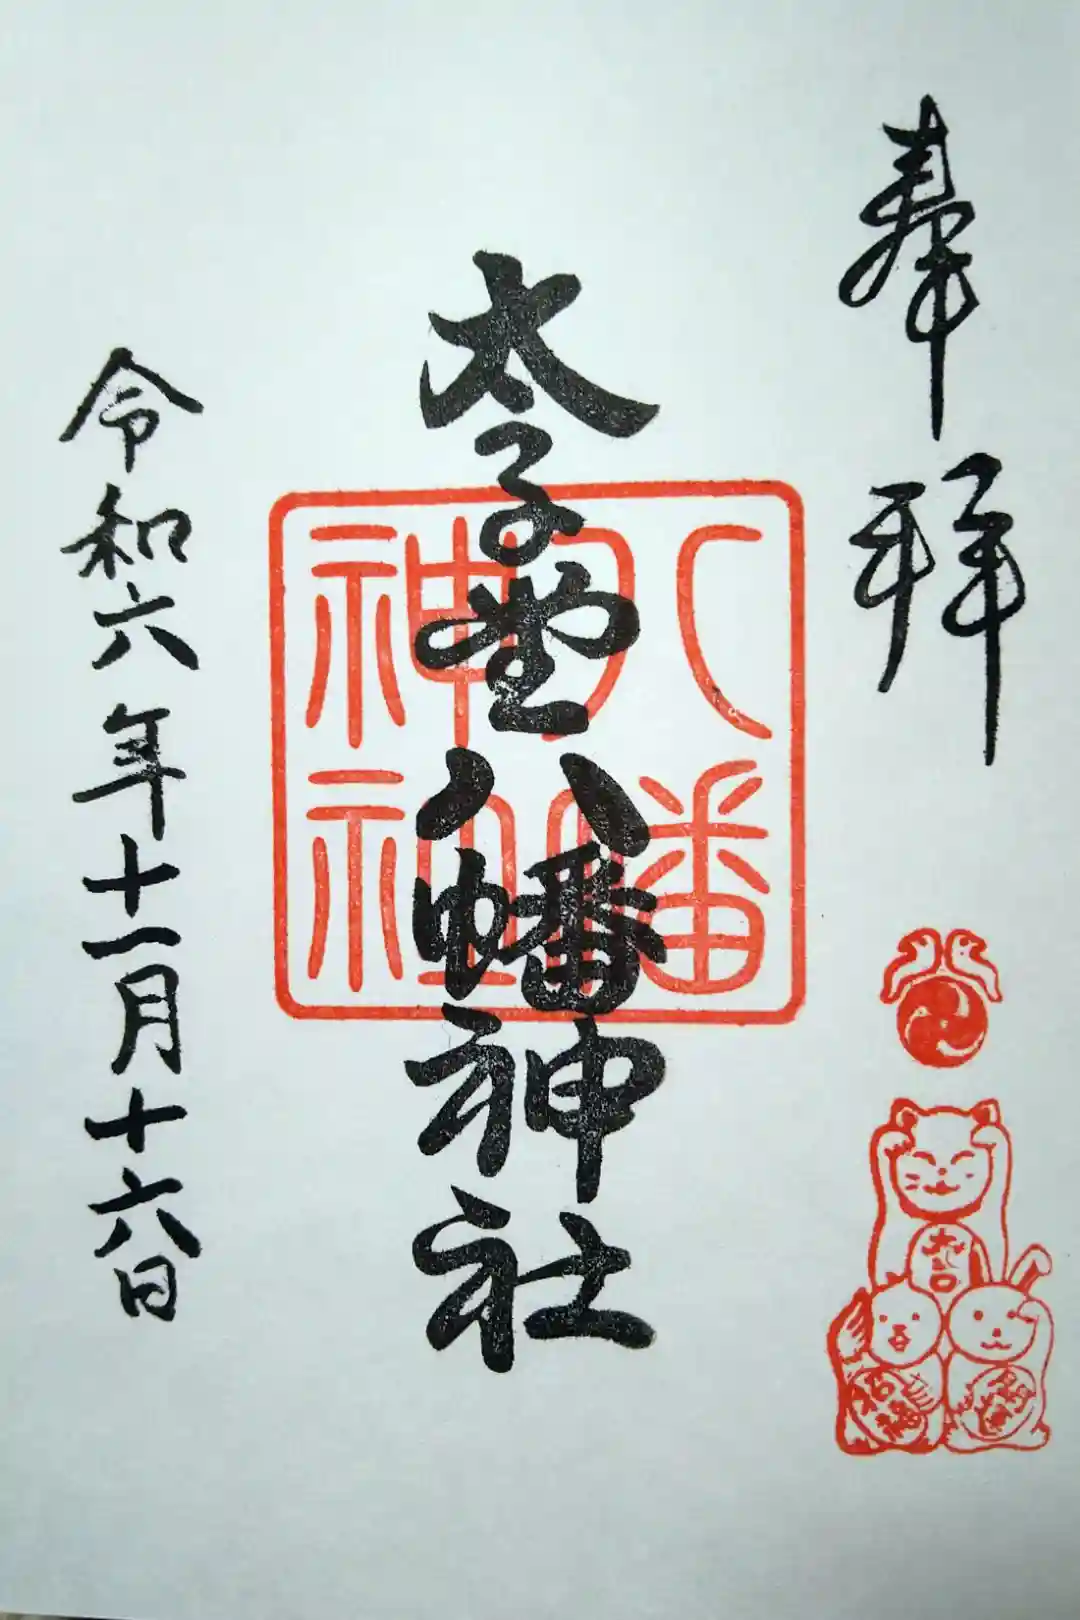 奉拝
太子堂八幡神社
八幡
神社
令和六年十一月十六日
大吉
招福
開運